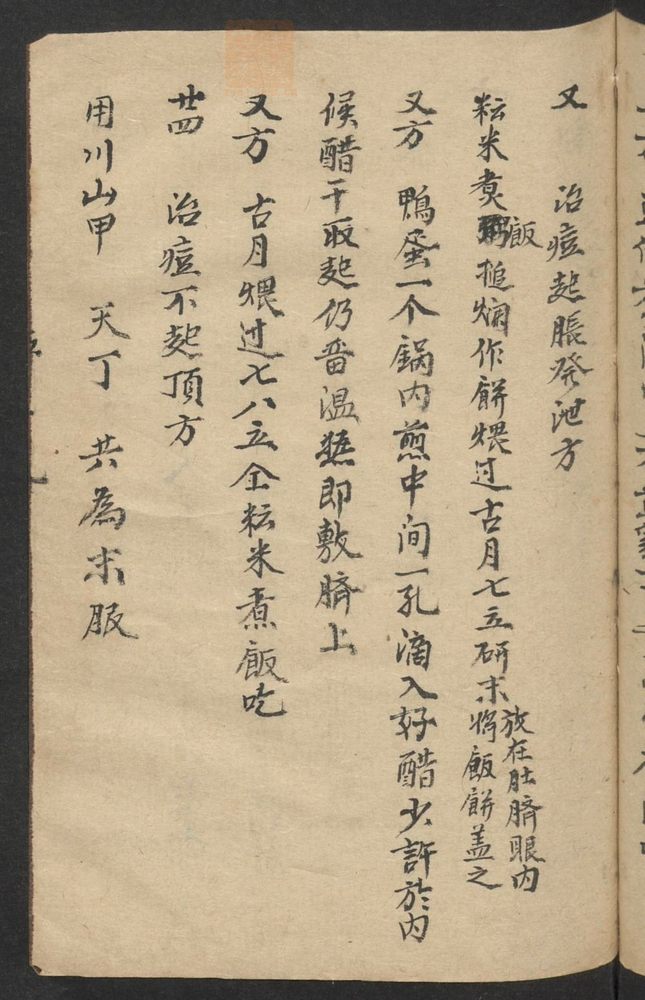 又 治痘起脹發泄方
粘米煮飯搥爛作餅煨过古月七立研末放在肚臍眼内將飯餅盖之
又方 鴨蛋一个鍋内煎中间一孔滴入好醋少許於内
候醋干取起仍畨温㷫即敷臍上
又方 古月煨过七八立仝粘米煮飯吃
廿四 治痘不起頂方
用川山甲 天丁 共為末服